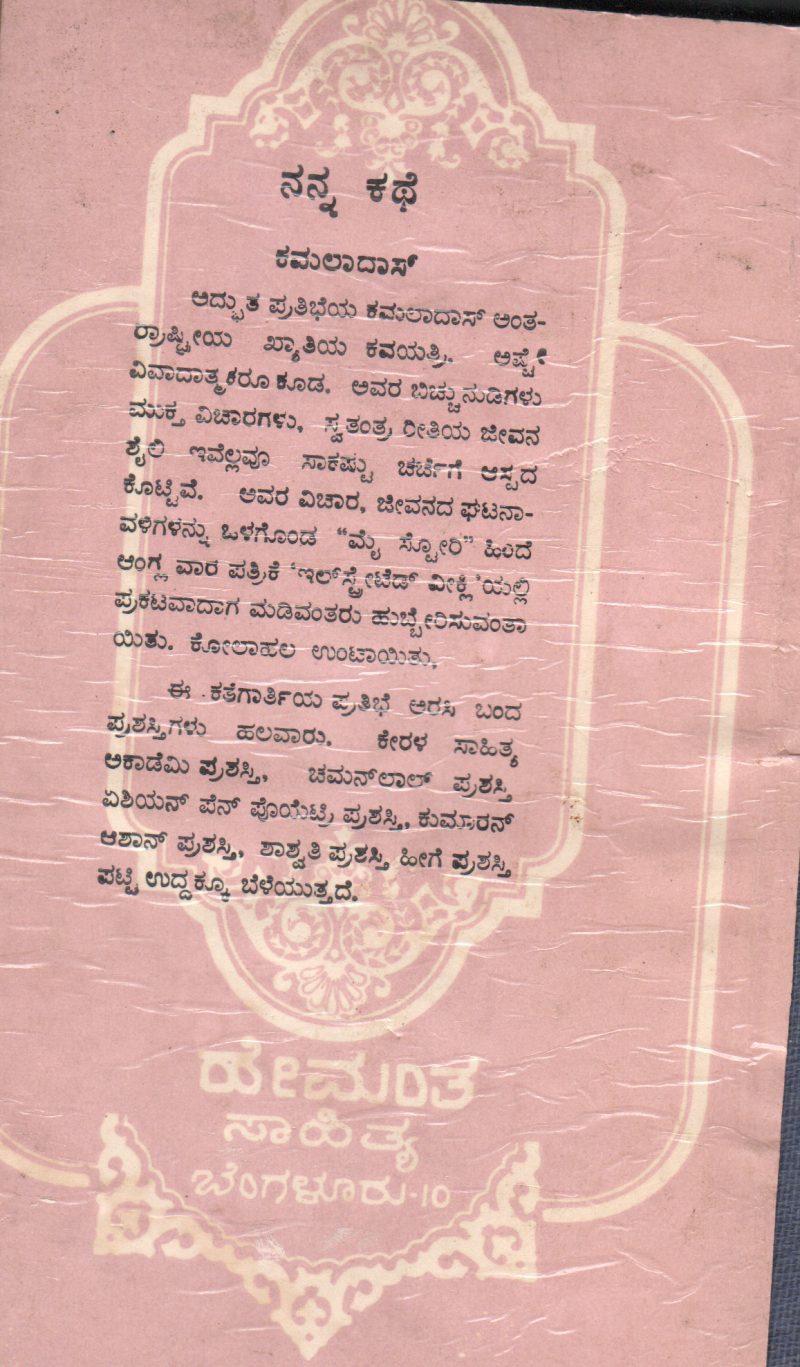 ನನ್ನ ಕಥೆ
ಕಮಲಾದಾಸ್
ಅದ್ಭುತ ಪ್ರತಿಭೆಯ ಕಮಲಾದಾಸ್ ಅಂತ-
ರ್ರಾಷ್ಟ್ರೀಯ ಖ್ಯಾತಿಯ ಕವಯತ್ರಿ. ಅಷ್ಟೇ
ವಿವಾದಾತ್ಮಕರೂ ಕೂಡ. ಅವರ ಬಿಚ್ಚುನುಡಿಗಳು
ಮುಕ್ತ ವಿಚಾರಗಳು, ಸ್ವತಂತ್ರ ರೀತಿಯ ಜೀವನ
ಶೈಲಿ ಇವೆಲ್ಲವೂ ಸಾಕಷ್ಟು ಚರ್ಚೆಗೆ ಆಸ್ಪದ
ಕೊಟ್ಟಿವೆ. ಅವರ ವಿಚಾರ, ಜೀವನದ ಘಟನಾ-
ವಳಿಗಳನ್ನು ಒಳಗೊಂಡ “ಮೈ ಸ್ಟೋರಿ” ಹಿಂದೆ
ಆಂಗ್ಲ ವಾರ ಪತ್ರಿಕೆ ‘ಇಲ್‌ಸ್ಟ್ರೇಟೆಡ್ ವೀಕ್ಲಿ’ಯಲ್ಲಿ
ಪ್ರಕಟವಾದಾಗ ಮಡಿವಂತರು ಹುಬ್ಬೇರಿಸುವಂತಾ
ಯಿತು. ಕೋಲಾಹಲ ಉಂಟಾಯಿತು.
ಈ ಕತೆಗಾರ್ತಿಯ ಪ್ರತಿಭೆ ಅರಸಿ ಬಂದ
ಪ್ರಶಸ್ತಿಗಳು ಹಲವಾರು. ಕೇರಳ ಸಾಹಿತ್ಯ
ಅಕಾಡೆಮಿ ಪ್ರಶಸ್ತಿ, ಚಮನ್‌ಲಾಲ್ ಪ್ರಶಸ್ತಿ
ಏಶಿಯನ್ ಪೆನ್ ಪೊಯೆಟ್ರಿ ಪ್ರಶಸ್ತಿ, ಕುಮಾರನ್
ಆಶಾನ್ ಪ್ರಶಸ್ತಿ, ಶಾಶ್ವತಿ ಪ್ರಶಸ್ತಿ ಹೀಗೆ ಪ್ರಶಸ್ತಿ
ಪಟ್ಟಿ ಉದ್ದಕ್ಕೂ ಬೆಳೆಯುತ್ತದೆ.
ಹೇಮಂತ
ಸಾಹಿತ್ಯ
ಬೆಂಗಳೂರು-೧೦